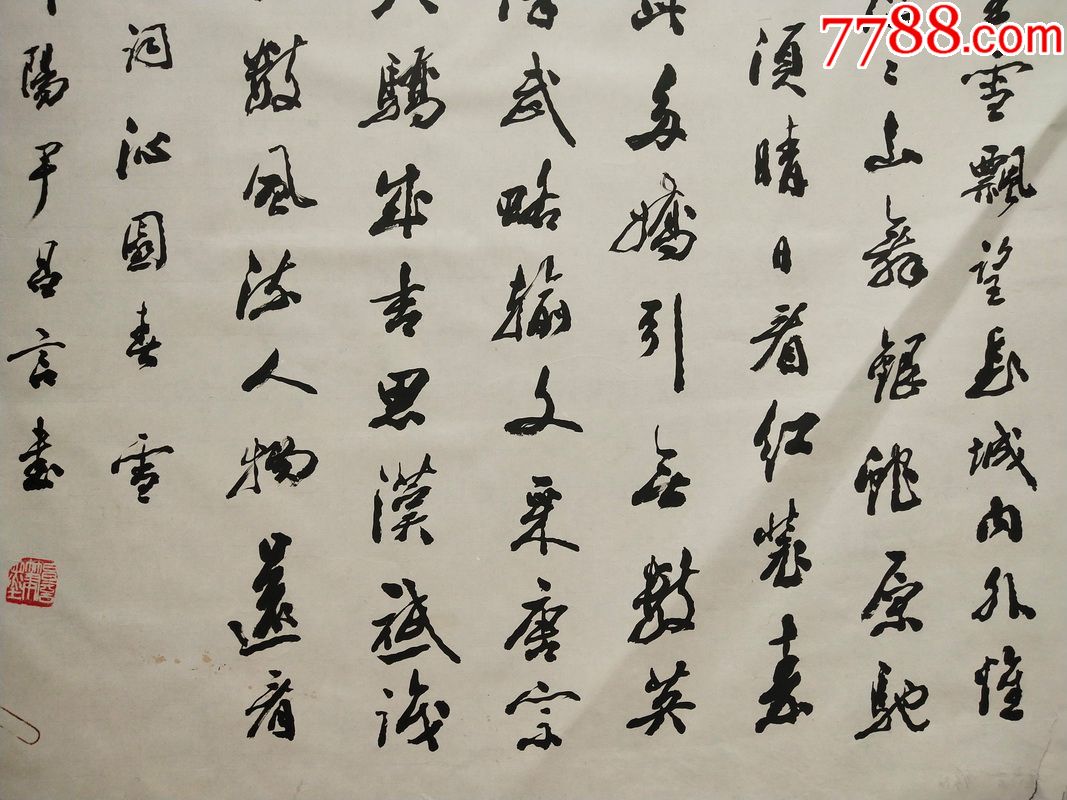 7788.com
雪飄望長城內外惟
山舞銀蛇原馳
須晴日看紅裝素
此多嬌引無數英
武略輸文采唐宗
驕成吉思漢祇識
數風流人物還看
詞沁園春雪
陽尹昌言書